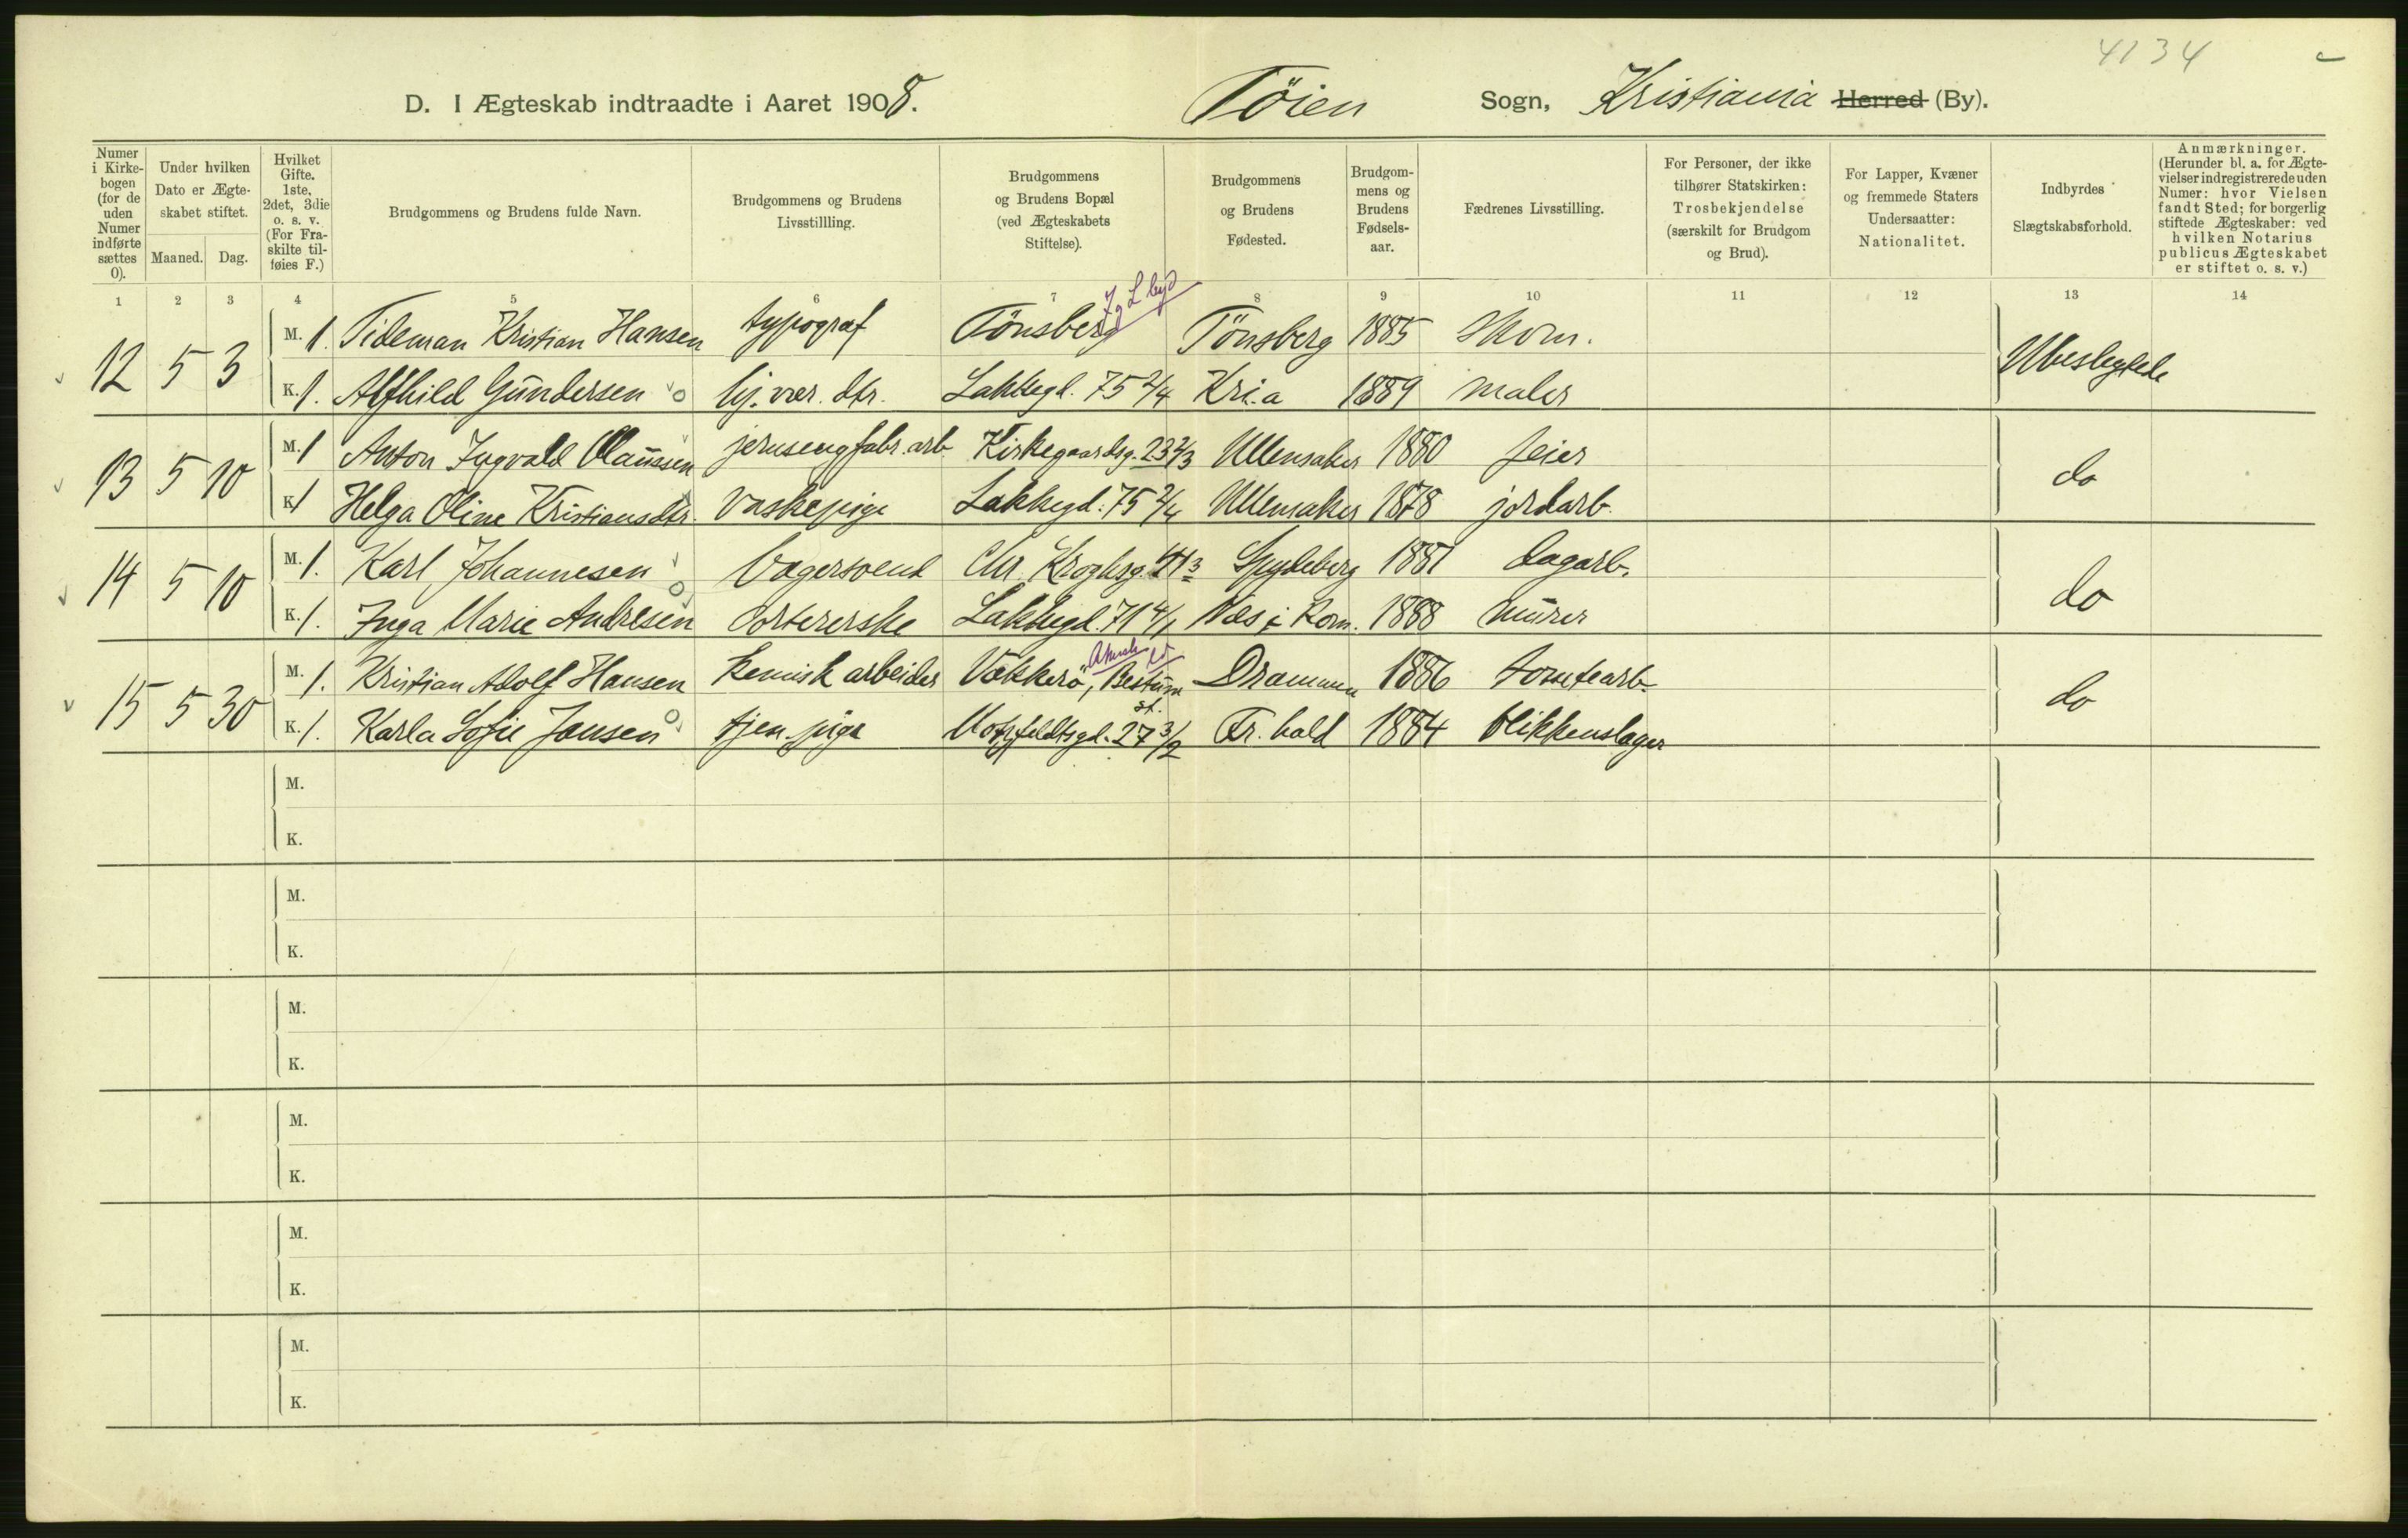 4134
D. I Ægteskab indtraadte i Aaret 1908. Töien Sogn, Kristiania Herred (By).
Numer i Kirkebogen (for de uden Numer indførte sættes 0).
Under hvilken Dato er Ægteskabet stiftet.
Maaned. Dag.
Hvilket Gifte. 1ste, 2det, 3die o. s. v. (For Fraskilte tilføies F.)
Brudgommens og Brudens fulde Navn.
Brudgommens og Brudens Livsstillling.
Brudgommens og Brudens Bopæl (ved Ægteskabets Stiftelse).
Brudgommens og Brudens Fødested.
Brudgommens og Brudens Fødselsaar.
Fædrenes Livsstilling.
For Personer, der ikke tilhører Statskirken: Trosbekjendelse (særskilt for Brudgom og Brud).
For Lapper, Kvæner og fremmede Staters Undersaatter: Nationalitet.
Indbyrdes Slægtskabsforhold.
Anmærkninger. (Herunder bl. a. for Ægtevielser indregistrerede uden Numer: hvor Vielsen fandt Sted; for borgerlig stiftede Ægteskaber: ved hvilken Notarius publicus Ægteskabet er stiftet o. s. v.)
1 2 3 4 5 6 7 8 9 10 11 12 13 14
12 5 3 M. 1. Tideman Kristian Hansen typograf Tönsberg Tönsberg 1885 Skom. Ubeslegtede
K. 1. Alfhild Gundersen hj. vær. dtr. Lakkegd. 75 2/4 Kri.a 1889 maler
13 5 10 M. 1 Anton Ingvald Claussen jernsengfabr. arb Kirkegaardsg. 23 2/3 Ullensaker 1880 feier do
K. 1 Helga Oline Kristiansdtr. Vaskepige Lakkegd. 75 2/4 Ullensaker 1878 jordarb.
14 5 10 M. 1. Karl Johannesen Bagersvend Chr. Kroghsg. 41 3 Spydeberg 1881 dagarb. do
K. 1. Inga Marie Andresen Sortererske Lakkegd. 71 4/1 Nes i Rom. 1888 murer
15 5 30 M. 1. Kristian Adolf Hansen Kemisk arbeider Vækkerö, Bestum st. Drammen 1886 tomtearb. do
K. 1. Karla Sofie Jansen tjen. pige Motzfeldtsgd. 27 3/2 Fr. hald 1884 blikkenslager
M.
K.
M.
K.
M.
K.
M.
K.
M.
K.
M.
K.